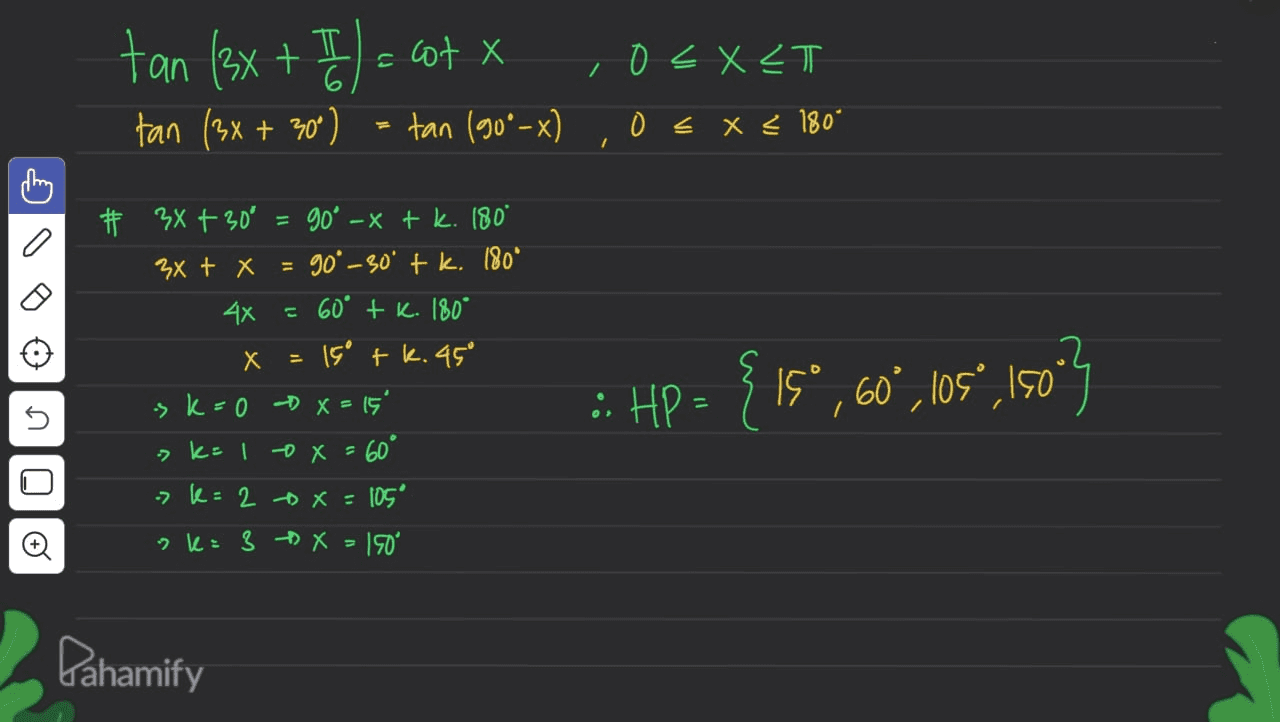 tan (3x + π/6) = cot x , 0 ≤ x ≤ π
tan (3x + 30°) = tan (90° - x) , 0 ≤ x ≤ 180°
# 3x + 30° = 90° - x + k. 180°
3x + x = 90° - 30° + k. 180°
4x = 60° + k. 180°
x = 15° + k. 45°
→ k = 0 → x = 15°
→ k = 1 → x = 60°
→ k = 2 → x = 105°
→ k = 3 → x = 150°
∴ HP = {15°, 60°, 105°, 150°}
Pahamify